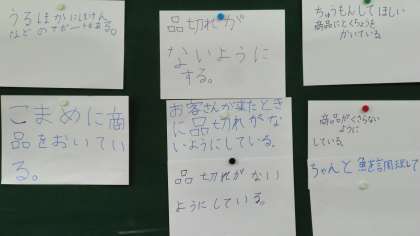 うるほかにほけん
などのサポートもある。
品切れが
ないように
する。
ちゅうもんしてほしい
商品にとくちょうを
かいている
こまめに商
品をおいてい
る。
お客さんが来たとき
に品切れがな
いようにしている。
品切れがない
ようにしている。
商品がくさらない
ように
している。
ちゃんと魚を調理して